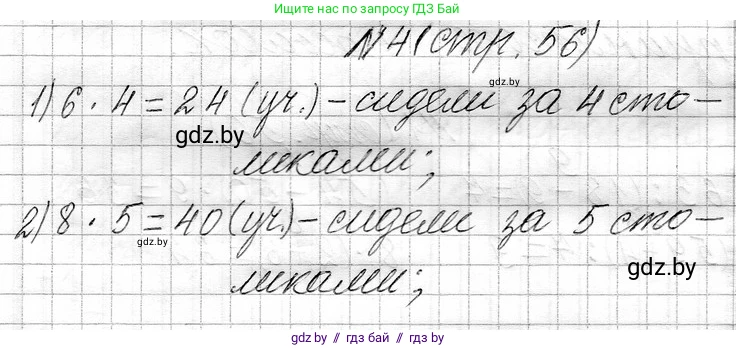 Ищите нас по запросу ГДЗ Бай
№4 (стр. 56)
1) 6 · 4 = 24 (уч.) – сидели за 4 сто-
gdz.by
gdz.by
ликами;
2) 8 · 5 = 40 (уч.) – сидели за 5 сто-
gdz.by
gdz.by
ликами;
gdz.by // гдз бай // gdz.by